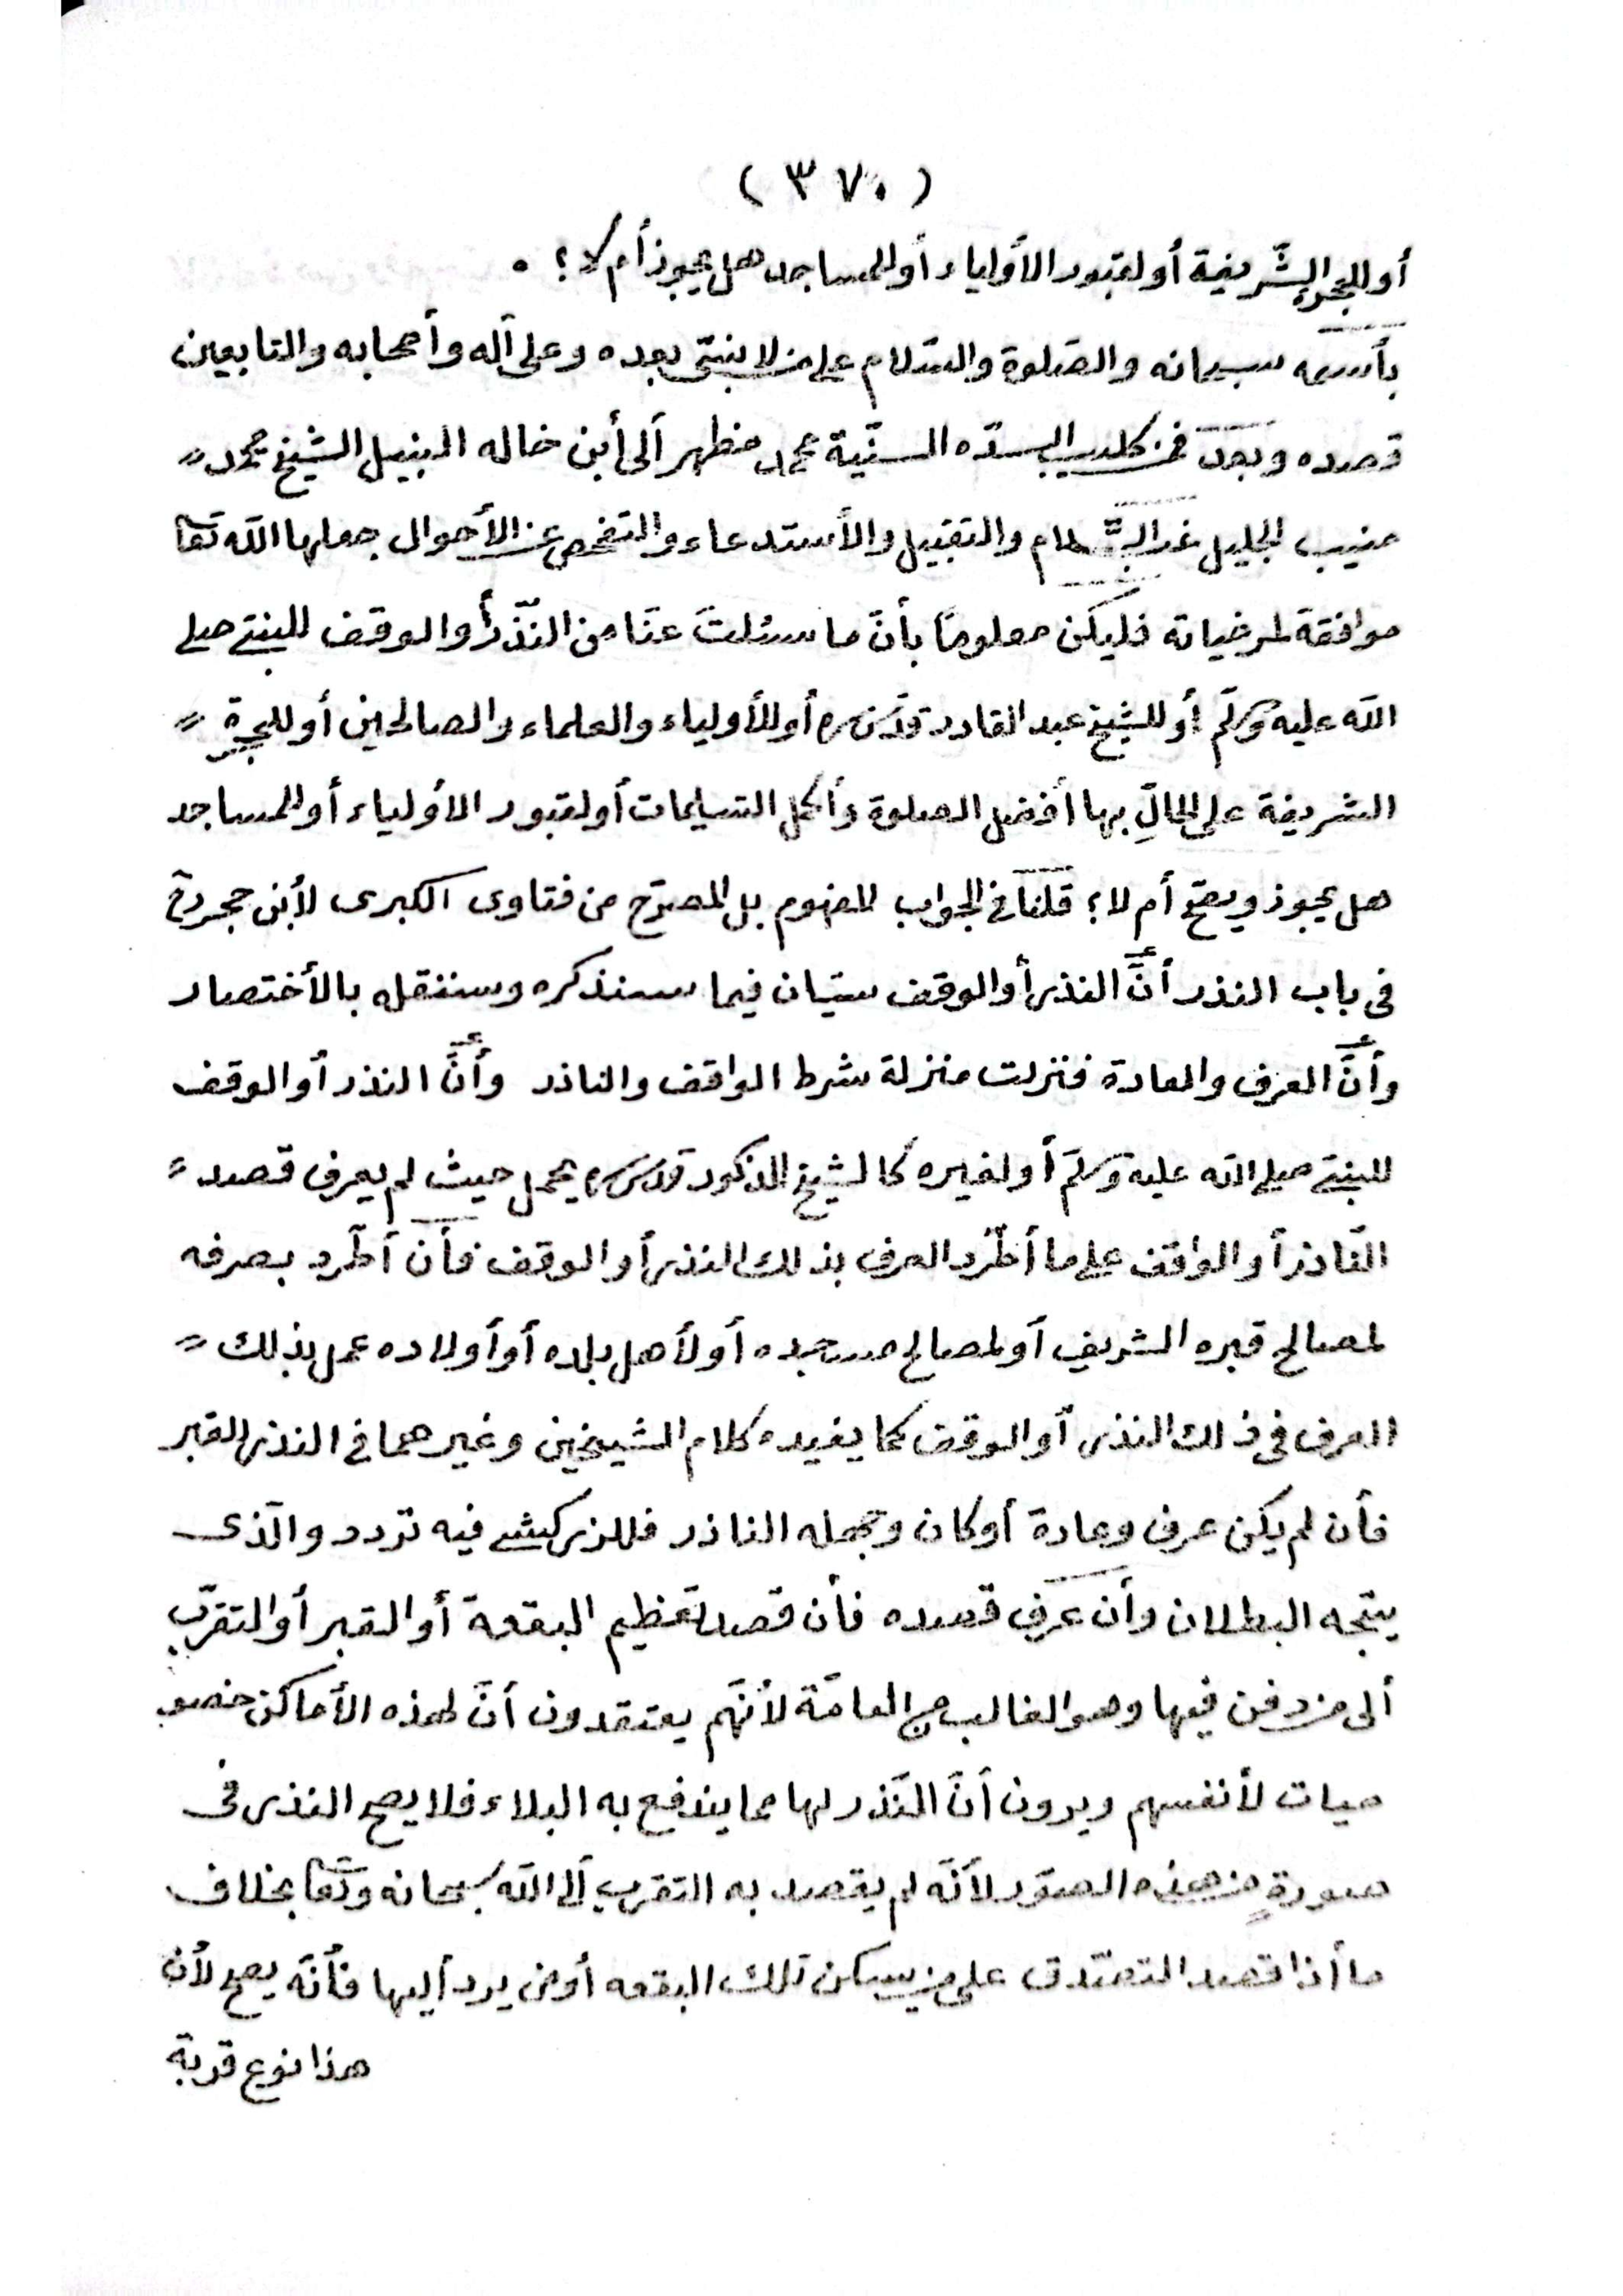 ( ٣٧٠ )
أو للحجرة الشّريفة أو لقبور الأولياء أو للمساجد هل يجوز أم لا؟ .
بأسمه سبحانه والصّلوة والسّلام على من لا نبيّ بعده وعلى آله وأصحابه والتابعين
قصده وبعد فمن كلب السدّه السنّية محمد مظهر ألى أبن خاله النبيل الشيخ محمد
منيب الجليل غبّ السّلام والتقبيل والأستدعاء والتفحص عن الأحوال جعلها الله تعا
موافقة لمرضياته فليكن معلومًا بأنّ ما سئلت عنّا من النّذر أو الوقف للنبيّ صلى
الله عليه وسلّم أو للشيخ عبد القادر قدّس سره أو للأولياء والعلماء والصالحين أو للحجرة
الشريفة على الحالّ بها أفضل الصلوة وأكمل التسليمات أو لقبور الأولياء أو للمساجد
هل يجوز ويصحّ أم لا؟ قلنا في الجواب المفهوم بل المصرّح من فتاوى الكبرى لأبن حجر رح
في باب النذر أنّ النذر أو الوقف سيّان فيما سنذكره وسننقله بالأختصار
وأنّ العرف والعادة فنزلت منزلة شرط الواقف والناذر وأنّ النذر أو الوقف
للنبيّ صلى الله عليه وسلّم أو لغيره كالشيخ المذكور قدس سره يحمل حيث لم يعرف قصد
النّاذر أو الواقف على ما أطّرد العرف بذلك النذر أو الوقف فأن أطّرد بصرفه
لمصالح قبره الشريف أو لمصالح مسجده أو لأهل بلده أو أولاده عمل بذلك
العرف في ذلك النذر أو الوقف كما يفيده كلام الشيخين وغيرهما في النذر للقبر
فأن لم يكن عرف وعادة أو كان وجهله الناذر فللزركشي فيه تردد والّذى
يتّجه البطلان وأن عرف قصده فأن قصد تعظيم البقعة أو القبر أو التقرّب
ألى من دفن فيها وهو الغالب من العامّة لأنّهم يعتقدون أنّ لهذه الأماكن خصو
صيات لأنفسهم ويرون أنّ النّذر لها مما يندفع به البلاء فلا يصح النذر فى
صورةٍ من هذه الصوّر لأنّه لم يقصد به التقرب ألى الله سبحانه وتعا بخلاف
ما أذا قصد التصّدق على من يسكن تلك البقعه أو من يرد أليها فأنّه يصح لأن
هذا نوع قربة